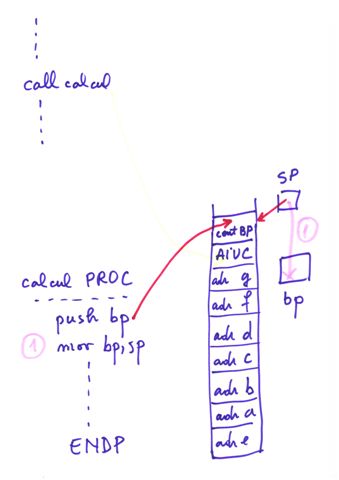 call calcul
SP
cont BP
AÎUC
adr g
1
bp
calcul PROC
adr f
push bp
1 mov bp,sp
adr d
adr c
adr b
adr a
adr e
ENDP